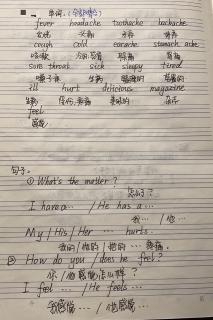 一、单词。(全部默写)
fever headache toothache backache
发烧 头痛 牙痛 背痛
cough cold earache stomach ache
咳嗽 感冒 耳痛 胃痛
sore throat sick sleepy tired
嗓子疼 生病
ill hurt delicious magazine
生病 美味的 杂志
feel
感觉
句子。
① What's the matter?
怎么了?
I have a... / He has a...
我... / 他...
My / His / Her ... hurts.
我的 / 他的 / 她的 ... 疼痛。
② How do you / does he feel?
你 / 他感觉怎么样?
I feel ... / He feels...
我感觉... / 他感觉...